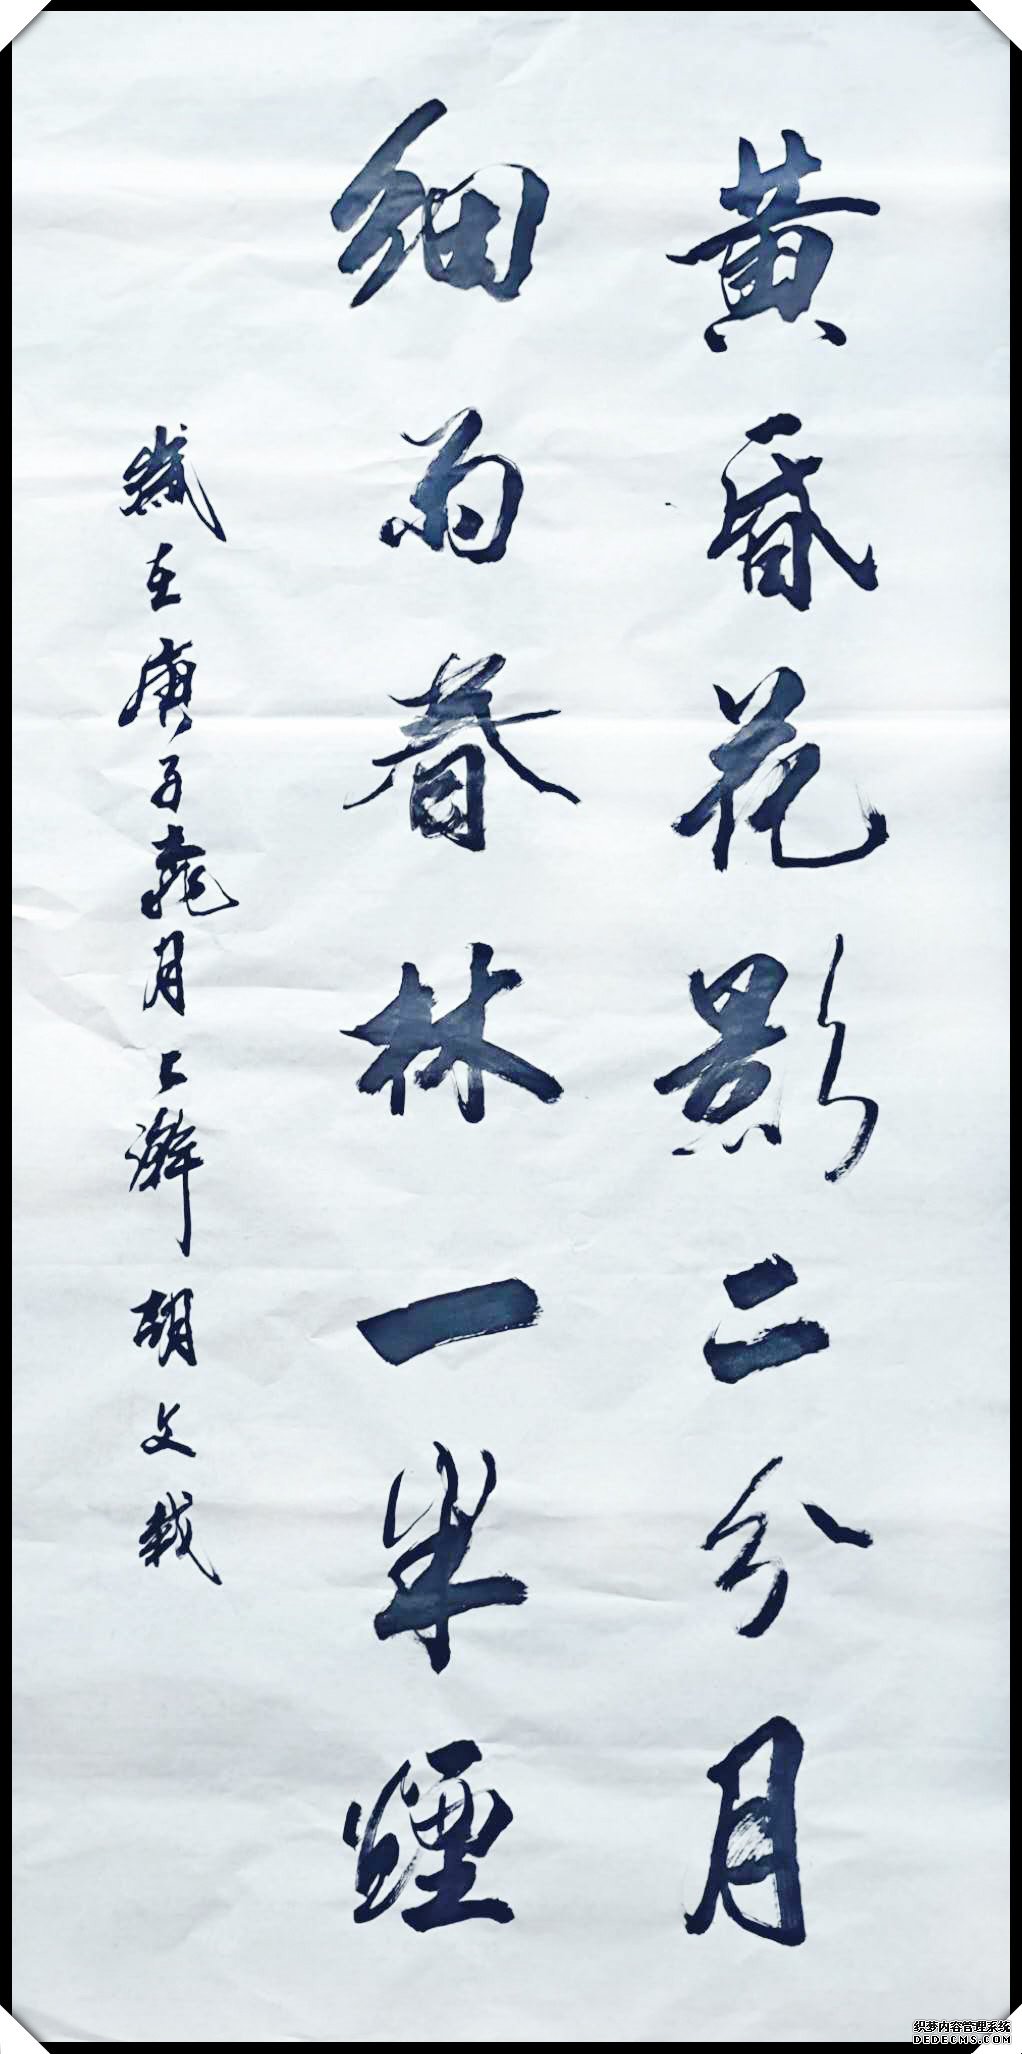 黄昏花影二分月
细雨春林一半煙
歲在庚子月上澣胡文载
织梦内容管理系统
DEDECMS.COM